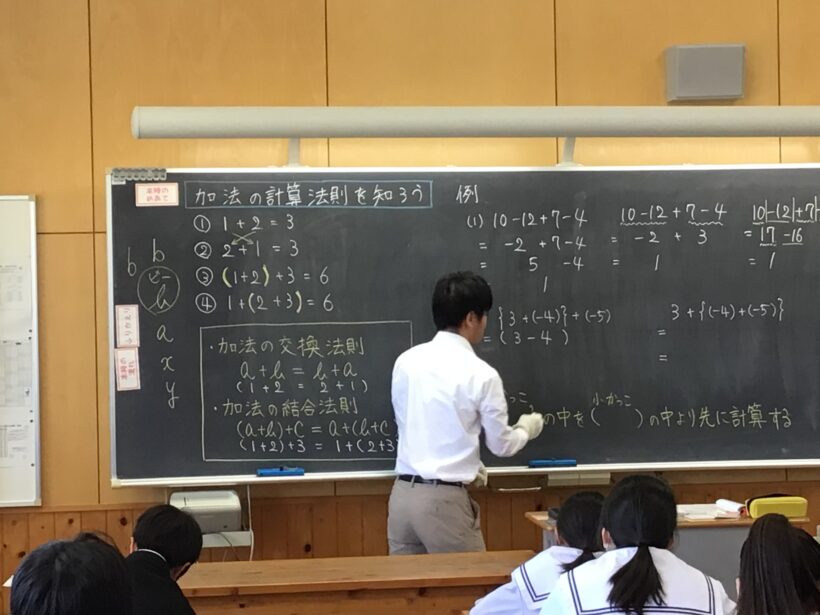 本時の
めあて
加法の計算法則を知ろう
① 1 + 2 = 3
② 2 + 1 = 3
③ (1+2) + 3 = 6
④ 1 + (2 + 3) = 6
・加法の交換法則
a + b = b + a
(1 + 2 = 2 + 1)
・加法の結合法則
(a+b)+c = a+(b+c
(1+2)+3 = 1+(2+3)
b
b
ビー
b
a
x
y
ふりかえり
本時の
流れ
例
(1) 10-12+7-4
= -2 +7-4
= 5 -4
1
10-12 + 7-4
= -2 + 3
= 1
10 -12 +7
= 17 -16
= 1
{3 + (-4)} + (-5)
= (3-4)
3 + {(-4) + (-5)}
=
=
っこ
小かっこ
の中を( )の中より先に計算する